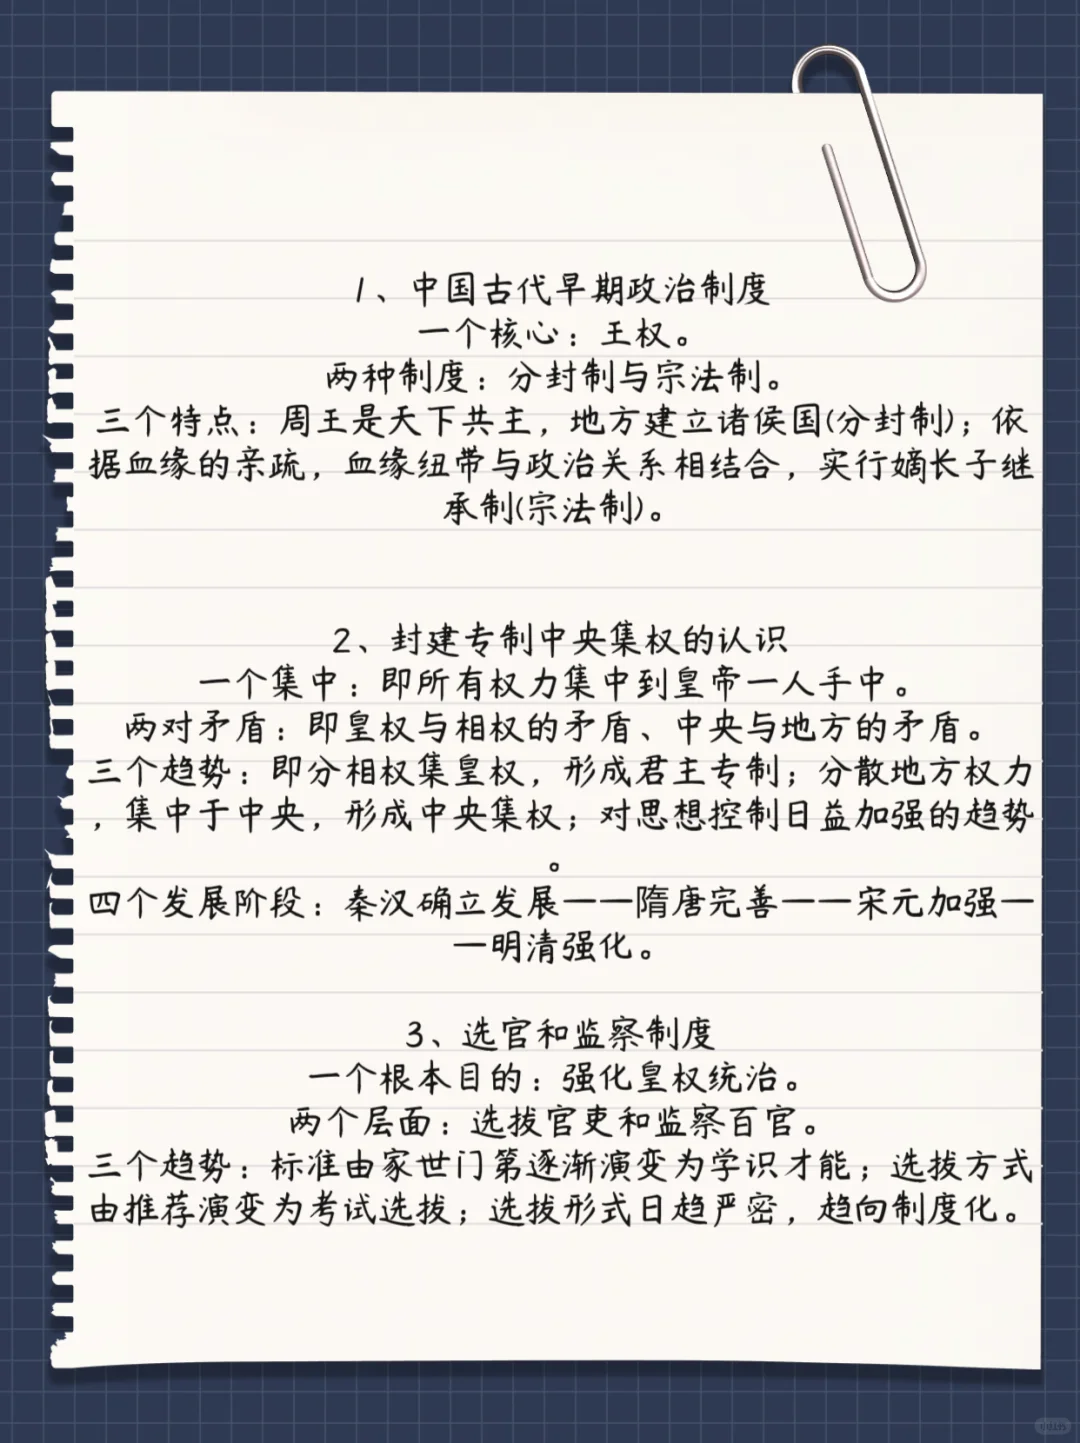 1、中国古代早期政治制度
一个核心：王权。
两种制度：分封制与宗法制。
三个特点：周王是天下共主，地方建立诸侯国(分封制)；依
据血缘的亲疏，血缘纽带与政治关系相结合，实行嫡长子继
承制(宗法制)。
2、封建专制中央集权的认识
一个集中：即所有权力集中到皇帝一人手中。
两对矛盾：即皇权与相权的矛盾、中央与地方的矛盾。
三个趋势：即分相权集皇权，形成君主专制；分散地方权力
，集中于中央，形成中央集权；对思想控制日益加强的趋势
。
四个发展阶段：秦汉确立发展——隋唐完善——宋元加强—
—明清强化。
3、选官和监察制度
一个根本目的：强化皇权统治。
两个层面：选拔官吏和监察百官。
三个趋势：标准由家世门第逐渐演变为学识才能；选拔方式
由推荐演变为考试选拔；选拔形式日趋严密，趋向制度化。